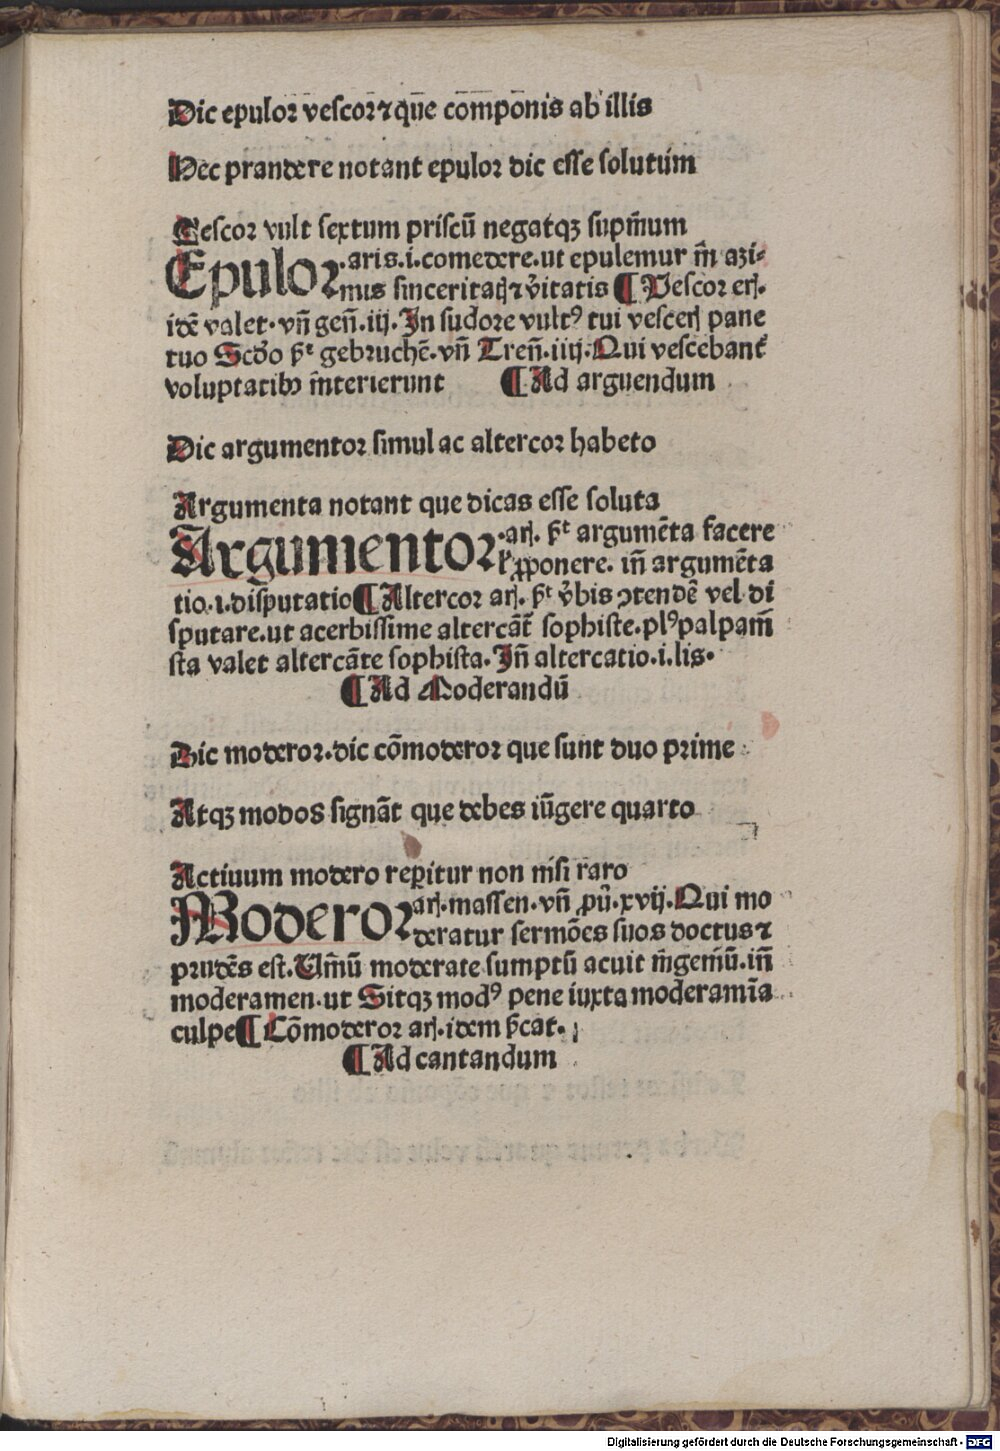 Dic epulor vescor ⁊ que᷒ compōnis ab illis
Nec prandere notant epulor dic esse solutum
Vescor vult sextum priscū negatqꝫ supm̄um
Epulor .aris.i.comedere.ut epulemur in̄ azi-
mus sinceritatꝭ ⁊ v̓itatis ¶ Vescor erꝭ.
idē valet. vn̄ gen̄.iij. In sudore vultꝰ tui vescerꝭ pane
tuo Scd̓o p̄t gebruchē. vn̄ Tren̄.iiij. Qui vescebant̄
voluptatibꝰ in̄terierunt ¶ Ad arguendum
Dic argumentor simul ac altercor habeto
Argumenta notant que dicas esse soluta
Argumentor .arꝭ. p̄t argumēta facere
ꝓponere. in̄ argumēta
tio.i.disputatio ¶ Altercor arꝭ. p̄t v̓bis ↄtendē vel di
sputare.ut acerbissime altercāt sophiste. plꝰ palpam̄
sta valet altercāte sophista. In̄ altercatio.i.lis.
¶ Ad Moderandū
Dic moderor.dic cōmoderor que sunt duo prime
Atqꝫ modos signāt que debes iūgere quarto
Actiuum modero reperitur non nisi raro
Moderor arꝭ.massen. vn̄ ꝓū.xvij. Qui mo
deratur sermōes suos doctus ⁊
prudēs est. Um̄ū moderate sumptū acuit in̄geniū. in̄
moderamen.ut Sitqꝫ modꝰ pene iuxta moderamīa
culpe ¶ Cōmoderor arꝭ.idem p̄cat.
¶ Ad cantandum
Digitalisierung gefördert durch die Deutsche Forschungsgemeinschaft - DFG